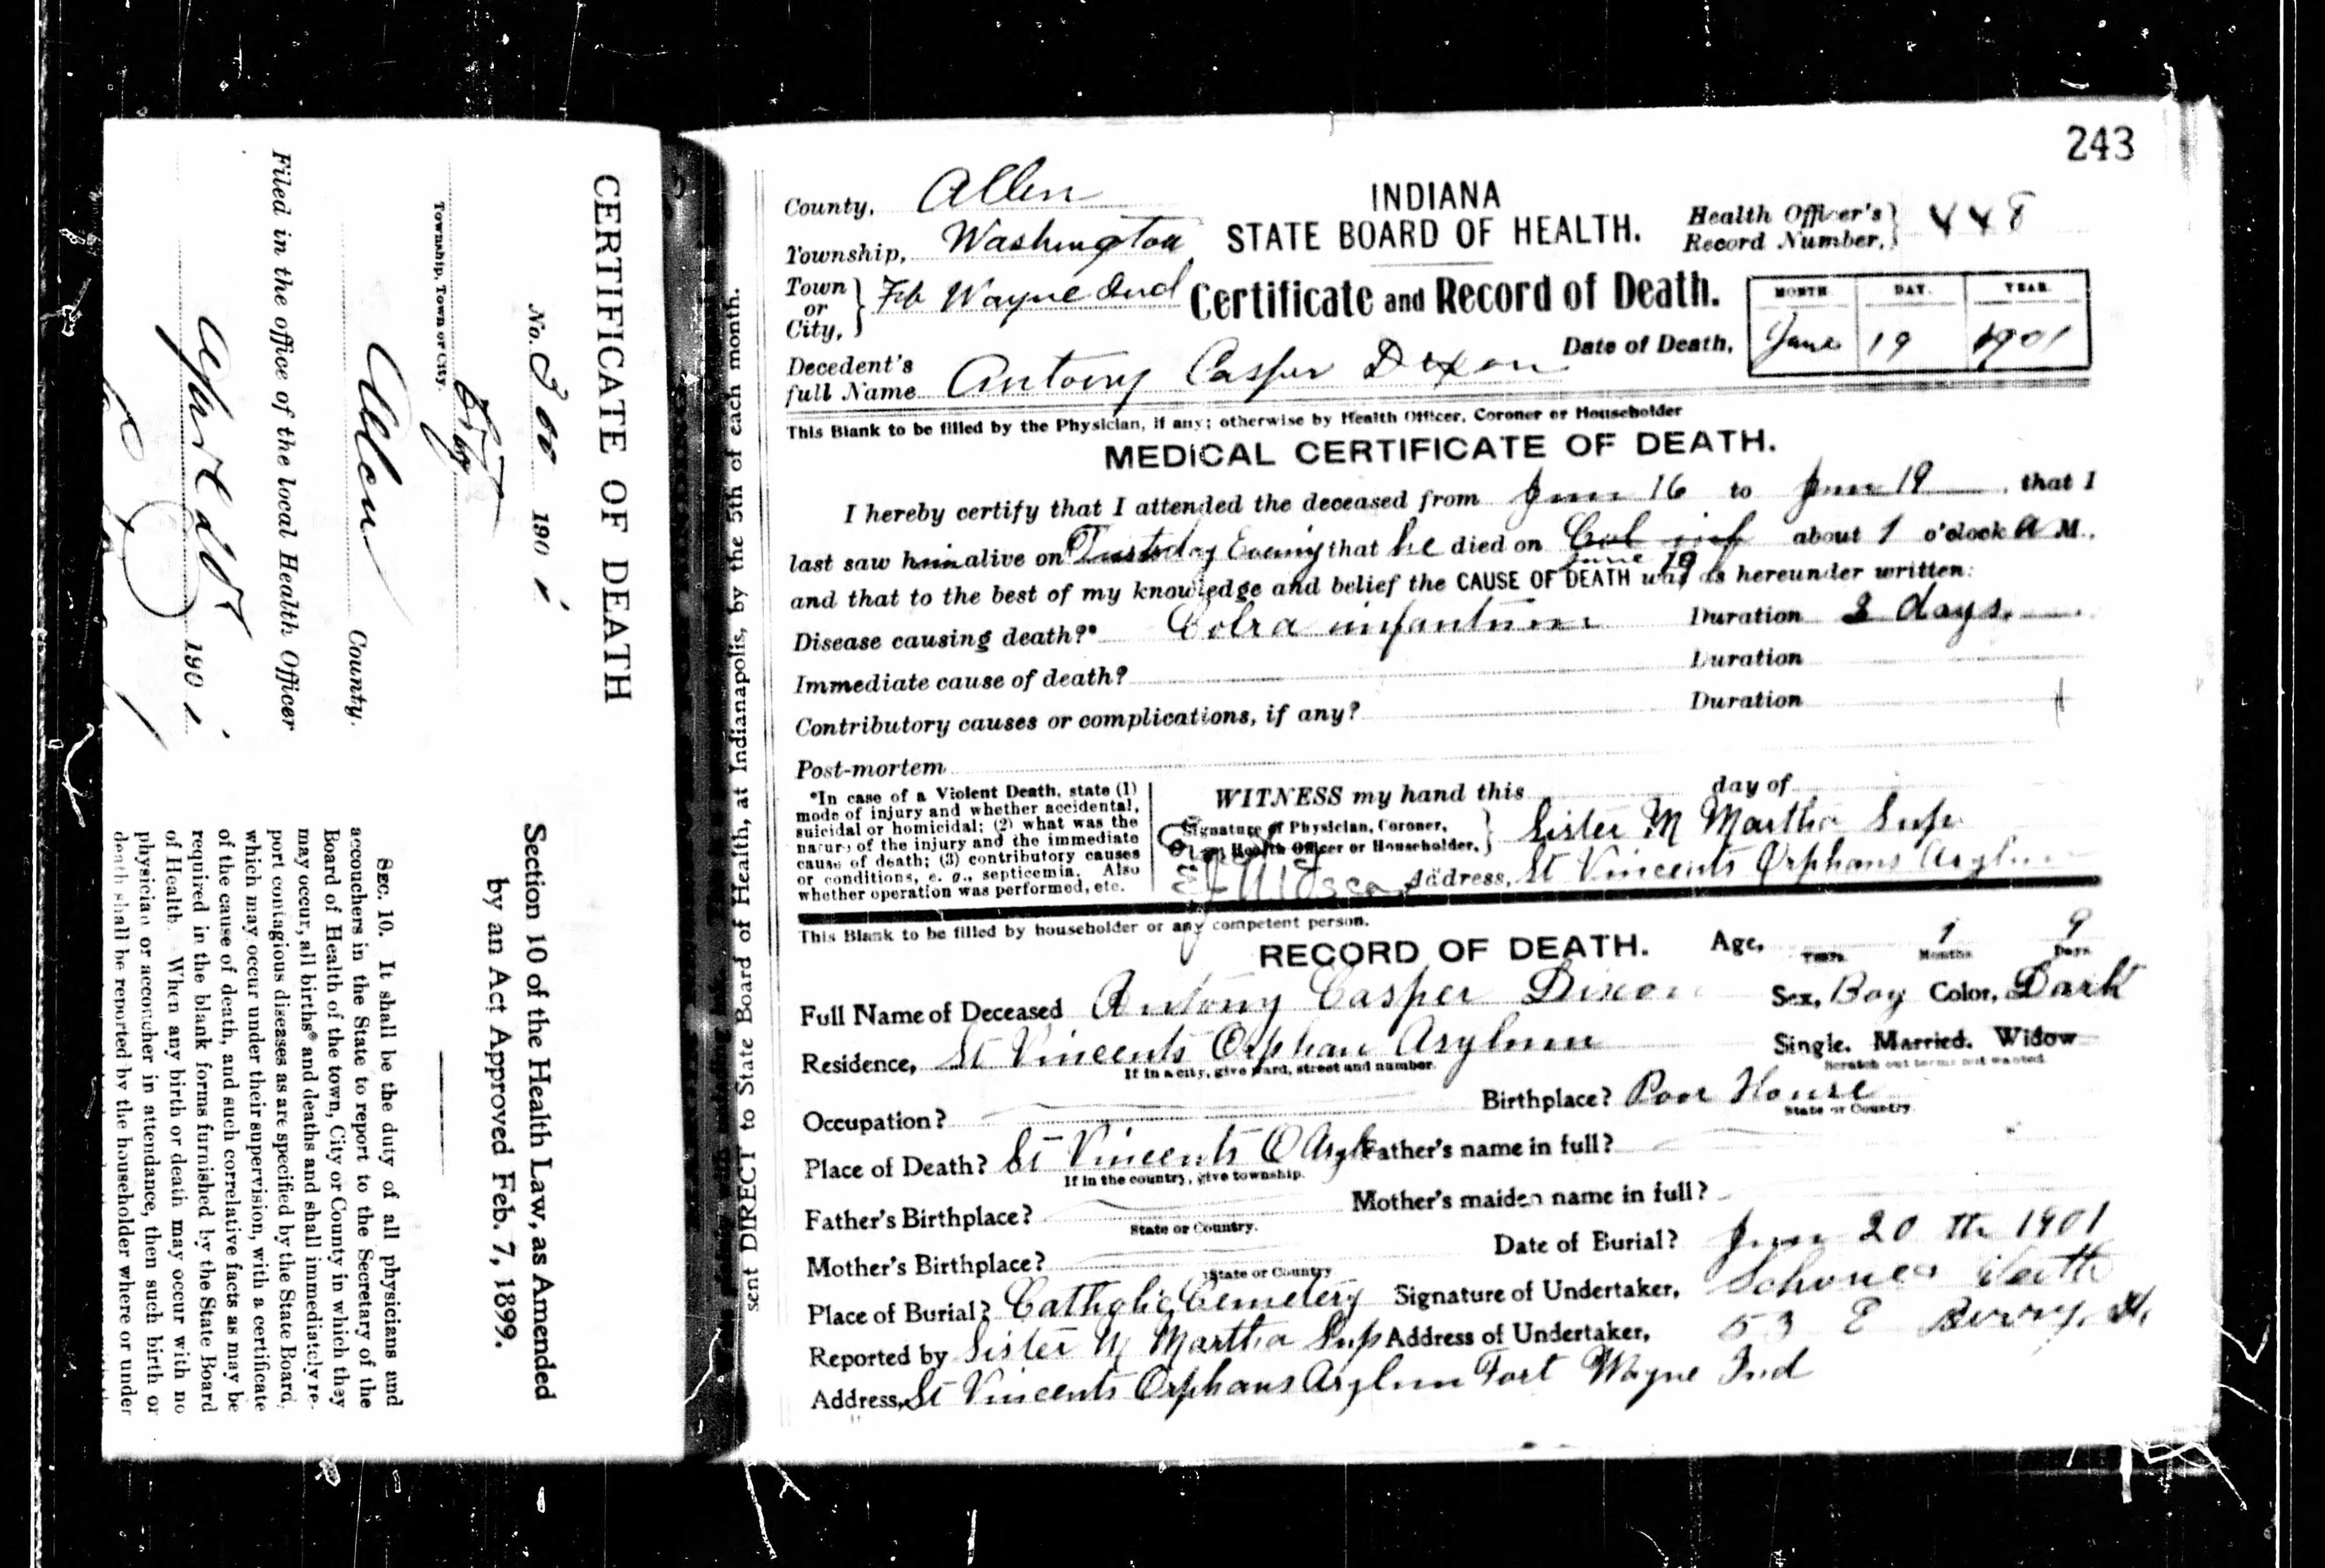 CERTIFICATE OF DEATH
No. 190 1
Township, Town or City.
Allen County.
Filed in the office of the local Health Officer
190 1
Section 10 of the Health Law, as Amended
by an Act Approved Feb. 7, 1899.
SEC. 10. It shall be the duty of all physicians and
accouchers in the State to report to the Secretary of the
Board of Health of the town, City or County in which they
may occur, all births* and deaths and shall immediately re-
port contagious diseases as are specified by the State Board,
which may occur under their supervision, with a certificate
of the cause of death, and such correlative facts as may be
required in the blank forms furnished by the State Board
of Health. When any birth or death may occur with no
physician or accoucher in attendance, then such birth or
death shall be reported by the householder where or under
sent DIRECT to State Board of Health, at Indianapolis, by the 5th of each month.
243
County, Allen
INDIANA
STATE BOARD OF HEALTH.
Health Officer's Record Number, 448
Township, Washington
Town or City, Ft Wayne Ind
Certificate and Record of Death.
MONTH. DAY. YEAR.
Date of Death, June 19 1901
Decedent's full Name Antony Casper Dixon
This Blank to be filled by the Physician, if any; otherwise by Health Officer, Coroner or Householder
MEDICAL CERTIFICATE OF DEATH.
I hereby certify that I attended the deceased from June 16 to June 19, that I
last saw him alive on Tuesday Evening that he died on Col inf June 19 about 1 o'clock A M.,
and that to the best of my knowledge and belief the CAUSE OF DEATH was as hereunder written:
Disease causing death?* Colra infantum Duration 3 days.
Immediate cause of death? Duration
Contributory causes or complications, if any? Duration
Post-mortem
*In case of a Violent Death, state (1)
mode of injury and whether accidental,
suicidal or homicidal; (2) what was the
nature of the injury and the immediate
cause of death; (3) contributory causes
or conditions, e. g., septicemia. Also
whether operation was performed, etc.
WITNESS my hand this day of
Signature of Physician, Coroner,
Health Officer or Householder, Sister M Martha Sup
Address, St Vincents Orphans Asylum
This Blank to be filled by householder or any competent person.
RECORD OF DEATH. Age, Years 1 Months 9 Days
Full Name of Deceased Antony Casper Dixon Sex, Boy Color, Dark
Residence, St Vincents Orphan Asylum Single. Married. Widow
If in a city, give ward, street and number. Scratch out terms not wanted.
Occupation? Birthplace? Poor House
State or Country.
Place of Death? St Vincents O Asyl Father's name in full?
If in the country, give township.
Father's Birthplace? Mother's maiden name in full?
State or Country.
Mother's Birthplace? Date of Burial? June 20 th 1901
State or Country
Place of Burial? Catholic Cemetery Signature of Undertaker,
Reported by Sister M Martha Sup Address of Undertaker, 53 E Berry St.
Address, St Vincents Orphans Asylum Fort Wayne Ind